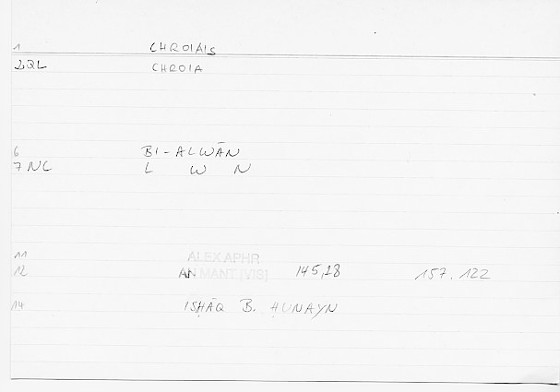 1 CHROIAIS
2QL CHROIA
6 BI-ALWĀN
7NC L W N
11 ALEX APHR
12 AN MANT.[VIS] 145,18 157.122
14 ISḤĀQ B. ḤUNAYN